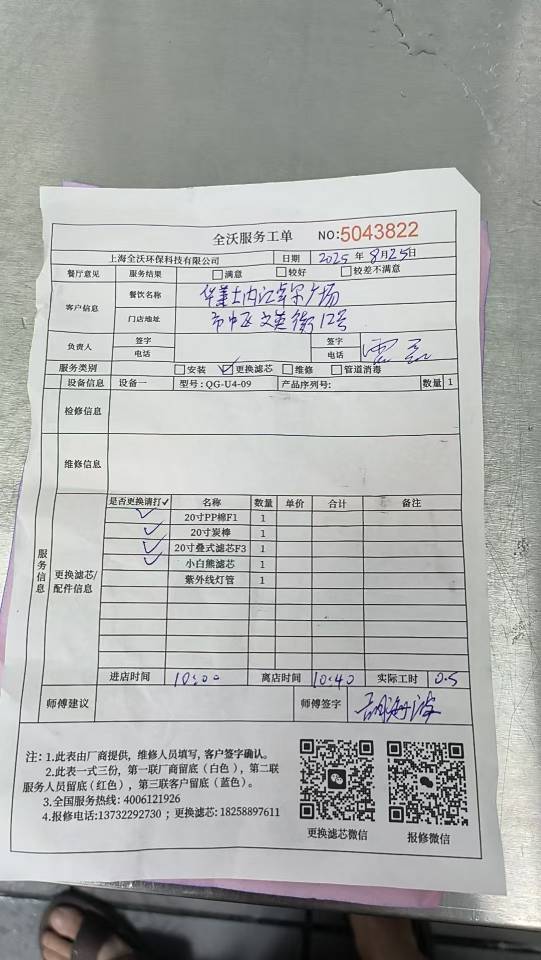 全沃服务工单 NO:5043822
上海全沃环保科技有限公司 日期 2025 年 8月25日
餐厅意见 服务结果 满意 较好 较差不满意
客户信息 餐饮名称 华莱士内江卓尔广场
门店地址 市中区文英街12号
负责人 签字 电话 签字 电话
服务类别 安装 更换滤芯 维修 管道消毒
设备信息 设备一 型号:QG-U4-09 产品序列号: 数量 1
检修信息
维修信息
服务信息
更换滤芯/配件信息
是否更换请打✓ 名称 数量 单价 合计 备注
✓ 20寸PP棉F1 1
✓ 20寸炭棒 1
✓ 20寸叠式滤芯F3 1
✓ 小白熊滤芯 1
紫外线灯管 1
进店时间 10:00 离店时间 10:40 实际工时 0.5
师傅建议 师傅签字
注:1.此表由厂商提供,维修人员填写,客户签字确认。
2.此表一式三份,第一联厂商留底(白色),第二联
服务人员留底(红色),第三联客户留底(蓝色)。
3.全国服务热线:4006121926
4.报修电话:13732292730;更换滤芯:18258897611
更换滤芯微信 报修微信